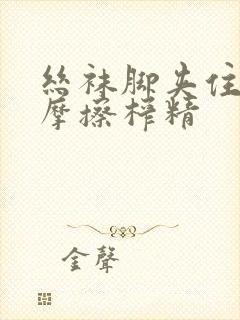 丝袜脚夹住
摩擦榨精
金聲